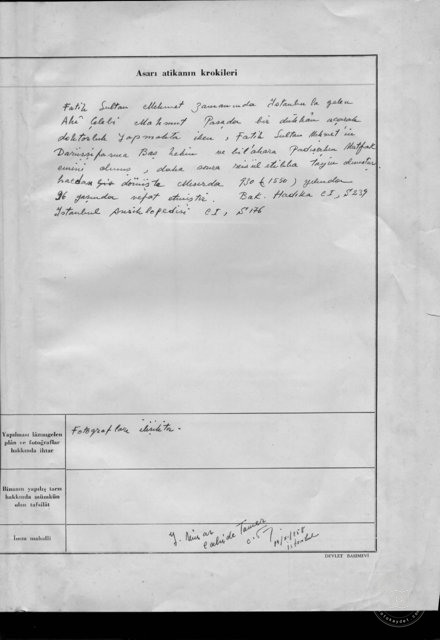 Asarı atikanın krokileri
Fatih Sultan Mehmet zamanında İstanbul'a gelen
Ahî Çelebi Mahmut Paşada bir dükkân açarak
doktorluk yapmakta iken, Fatih Sultan Mehmet'in
Darüşşifasına Baş hekim ve bilâhara Padişahın Mutfak
emini olmuş, daha sonra reisül etibba tayin olmuştur
hacdan dönüşte Mısırda 930 (1524) yılında
96 yaşında vefat etmiştir. Bak. Hadika C I, S 239
İstanbul Ansiklopedisi C I, S 176
Yapılması lâzımgelen
plân ve fotoğraflar
hakkında ihtar
Fotoğrafları ilişiktir.
Binanın yapılış tarzı
hakkında mümkün
olan tafsilât
İmza mahalli
Y. Mimar
Cahide Tamer
İstanbul
DEVLET BASIMEVİ